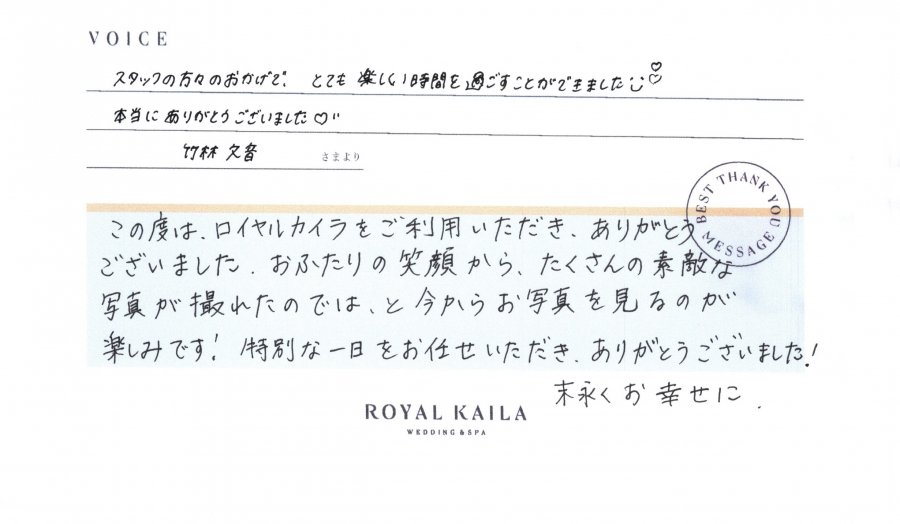 VOICE
スタッフの方々のおかげで、とても楽しい時間を過ごすことができました
本当にありがとうございました♡
竹林 文音 さまより
BEST THANK YOU MESSAGE
この度は、ロイヤルカイラをご利用いただき、ありがとう
ございました。おふたりの笑顔から、たくさんの素敵な
写真が撮れたのでは、と今からお写真を見るのが
楽しみです!特別な一日をお任せいただき、ありがとうございました!
末永くお幸せに.
ROYAL KAILA
WEDDING & SPA